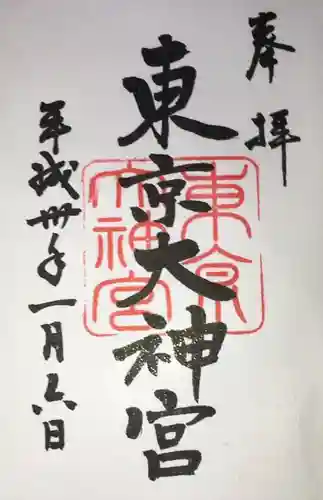 奉拝
東京大神宮
東京大神宮
平成卅年一月六日